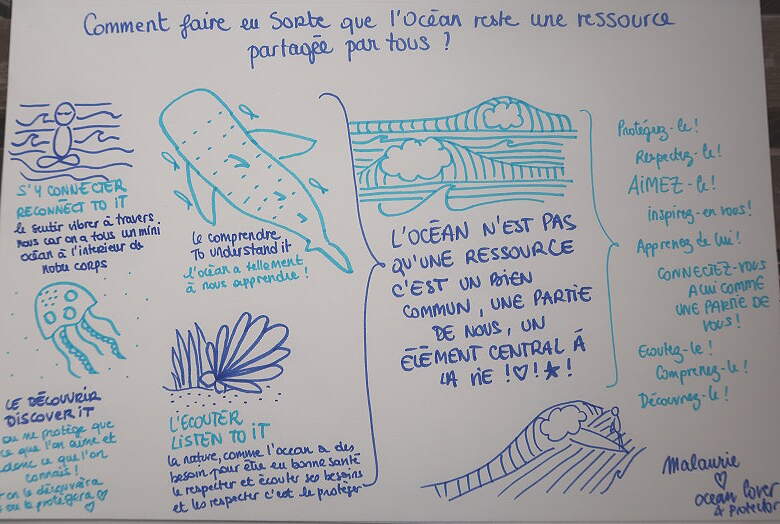 Comment faire en sorte que l'Océan reste une ressource
partagée par tous ?
S'Y CONNECTER
RECONNECT TO IT
le sentir vibrer à travers
nous car on a tous un mini
océan à l'intérieur de
notre corps
le comprendre
To understand it
l'océan a tellement
à nous apprendre !
LE DÉCOUVRIR
DISCOVER IT
on ne protège que
ce que l'on aime et
donc ce que l'on
connait !
on le découvrira
on le protégera
L'ECOUTER
LISTEN TO IT
la nature, comme l'océan a des
besoin pour être en bonne santé
le respecter et écouter ses besoins
et les respecter c'est le protéger
L'OCÉAN N'EST PAS
QU'UNE RESSOURCE
C'EST UN BIEN
COMMUN, UNE PARTIE
DE NOUS, UN
ÉLÉMENT CENTRAL À
LA VIE !♡!★!
Protégez-le !
Respectez-le !
AIMEZ-le !
inspirez-en vous !
Apprenez de lui !
CONNECTEZ-VOUS
A LUI COMME
UNE PARTIE DE
VOUS !
Ecoutez-le !
Comprenez-le !
Découvrez-le !
Malaurie
♡
ocean lover
& Protector